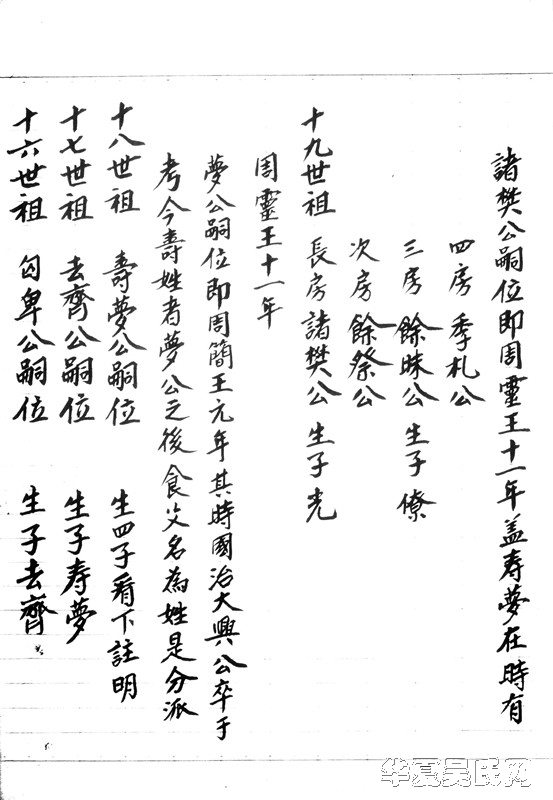 十六世祖 勾卑公嗣位 生子去齊
十七世祖 去齊公嗣位 生子寿夢
十八世祖 壽夢公嗣位 生四子看下註明
考今壽姓者夢公之後食父名為姓是分派
夢公嗣位即周簡王元年其時國治大興公卒于
周靈王十一年
十九世祖 長房諸樊公生子光
次房餘祭公
三房餘昧公生子僚
四房季札公
諸樊公嗣位即周靈王十一年盖寿夢在時有
华夏吴氏网